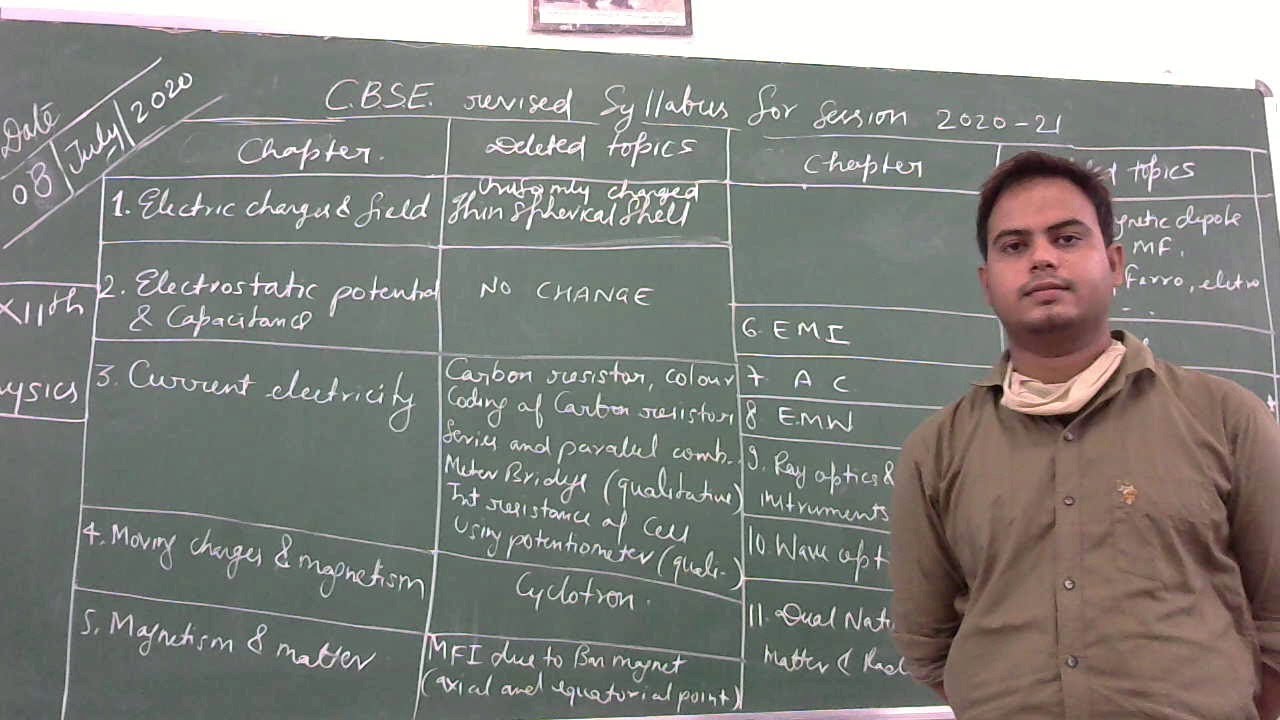 Date
08 July/2020
C.B.S.E. revised Syllabus for Session 2020-21
Chapter.
Deleted topics
Chapter
topics
1. Electric charges & field
Uniformly charged
Thin Spherical Shell
2. Electrostatic potential
& Capacitance
NO CHANGE
3. Current electricity
Carbon resistor, colour
Coding of Carbon resistor
Series and parallel comb..
Meter Bridge (qualitative)
Int resistance of Cell
Using potentiometer (quali-)
4. Moving charges & magnetism
Cyclotron.
5. Magnetism & matter
MFI due to Bar magnet
(axial and equatorial point)
XIIth
ysics
6. EMI
7. A C
8 E.M.W
9. Ray optics &
instruments
10. Wave opti
11. Dual Nat
Matter & Rad
netic dipole
MF.
Ferro, eletro